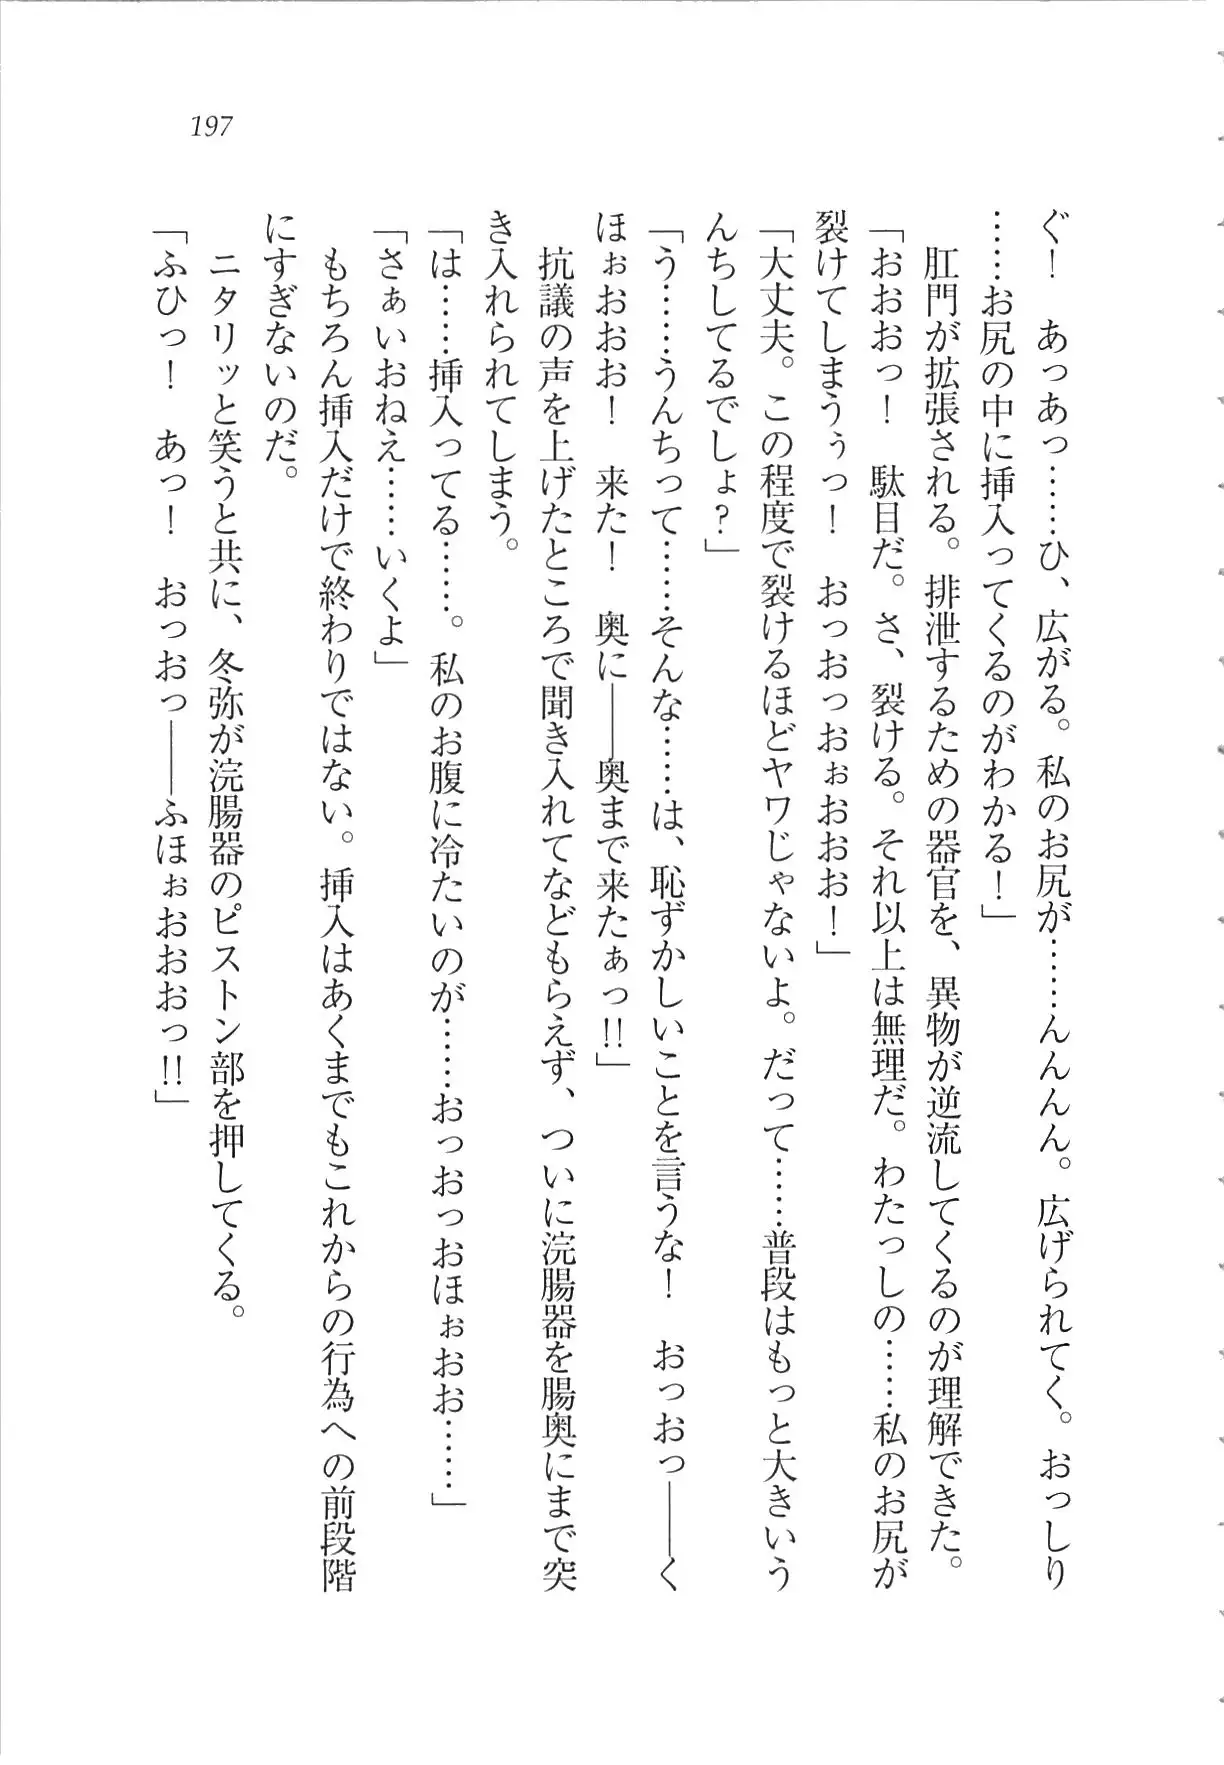 197
ぐ！　あっあっ……ひ、広がる。私のお尻が……んんんん。広げられてく。おっしり
……お尻の中に挿入ってくるのがわかる！」
　肛門が拡張される。排泄するための器官を、異物が逆流してくるのが理解できた。
「おおおっ！　駄目だ。さ、裂ける。それ以上は無理だ。わたっしの……私のお尻が
裂けてしまうぅっ！　おっおっおぉおおお！」
「大丈夫。この程度で裂けるほどヤワじゃないよ。だって……普段はもっと大きいう
んちしてるでしょ？」
「う……うんちって……そんな……は、恥ずかしいことを言うな！　おっおっ――く
ほぉおおお！　来た！　奥に――奥まで来たぁっ!!」
　抗議の声を上げたところで聞き入れてなどもらえず、ついに浣腸器を腸奥にまで突
き入れられてしまう。
「は……挿入ってる……。私のお腹に冷たいのが……おっおっおほぉおお……」
「さぁいおねえ……いくよ」
　もちろん挿入だけで終わりではない。挿入はあくまでもこれからの行為への前段階
にすぎないのだ。
　ニタリッと笑うと共に、冬弥が浣腸器のピストン部を押してくる。
「ふひっ！　あっ！　おっおっ――ふほぉおおおっ!!」